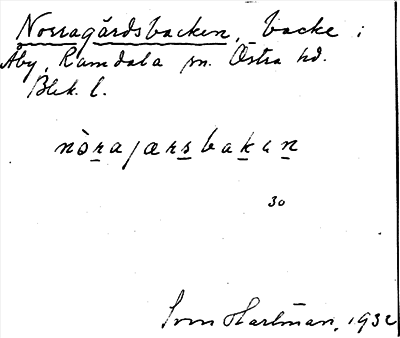 Norragårdsbacken, backe i
Åby, Ramdala sn. Östra hd.
Blek. l.
nòrajærsbakan
30
Sven Hartman, 1932